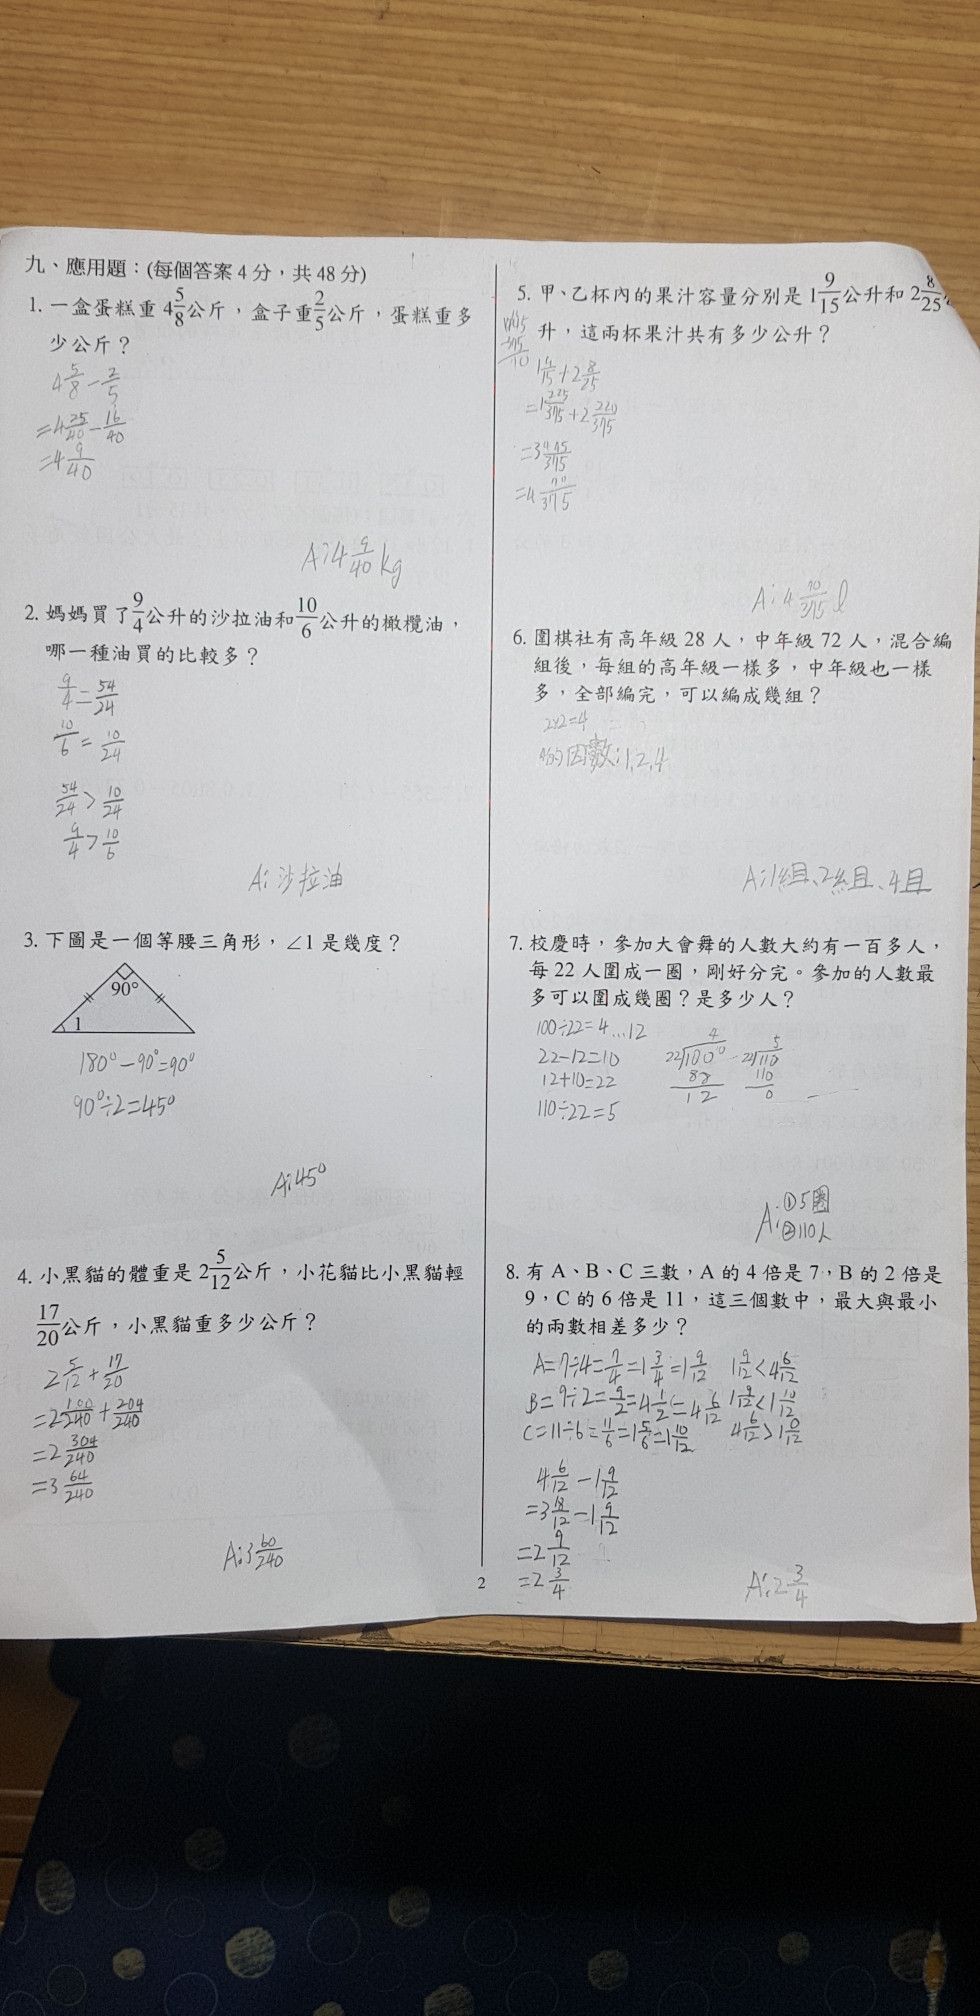 九、應用題：(每個答案 4 分，共 48 分)
1. 一盒蛋糕重 4 5/8 公斤，盒子重 2/5 公斤，蛋糕重多
少公斤？
4 5/8 - 2/5
=4 25/40 - 16/40
=4 9/40
A:4 9/40 kg
2. 媽媽買了 9/4 公升的沙拉油和 10/6 公升的橄欖油，
哪一種油買的比較多？
9/4 = 54/24
10/6 = 10/24
54/24 > 10/24
9/4 > 10/6
A:沙拉油
3. 下圖是一個等腰三角形，∠1 是幾度？
90°
1
180°-90°=90°
90°÷2=45°
A:45°
4. 小黑貓的體重是 2 5/12 公斤，小花貓比小黑貓輕
17/20 公斤，小黑貓重多少公斤？
2 5/12 + 17/20
=2 100/240 + 204/240
=2 304/240
=3 64/240
A:3 60/240
5. 甲、乙杯內的果汁容量分別是 1 9/15 公升和 2 8/25
升，這兩杯果汁共有多少公升？
+2 8/25
=1 225/375 +2 220/375
=3 445/375
=4 70/375
A:4 70/375 l
6. 圍棋社有高年級 28 人，中年級 72 人，混合編
組後，每組的高年級一樣多，中年級也一樣
多，全部編完，可以編成幾組？
2×2=4
的因數:1,2,4
A:1組、2組、4組
7. 校慶時，參加大會舞的人數大約有一百多人，
每 22 人圍成一圈，剛好分完。參加的人數最
多可以圍成幾圈？是多少人？
100÷22=4…12
22-12=10
12+10=22
110÷22=5
4
22 100
88
12
5
22 110
110
0
A:①5圈
②110人
8. 有 A、B、C 三數，A 的 4 倍是 7，B 的 2 倍是
9，C 的 6 倍是 11，這三個數中，最大與最小
的兩數相差多少？
A=7÷4=7/4=1 3/4=1 9/12 1 9/12<4 6/12
B=9÷2=9/2=4 1/2=4 6/12 1 9/12<1 10/12
C=11÷6=11/6=1 5/6=1 10/12 4 6/12>1 10/12
4 6/12 -1 9/12
=3 18/12 -1 9/12
=2 9/12
=2 3/4
A:2 3/4
2